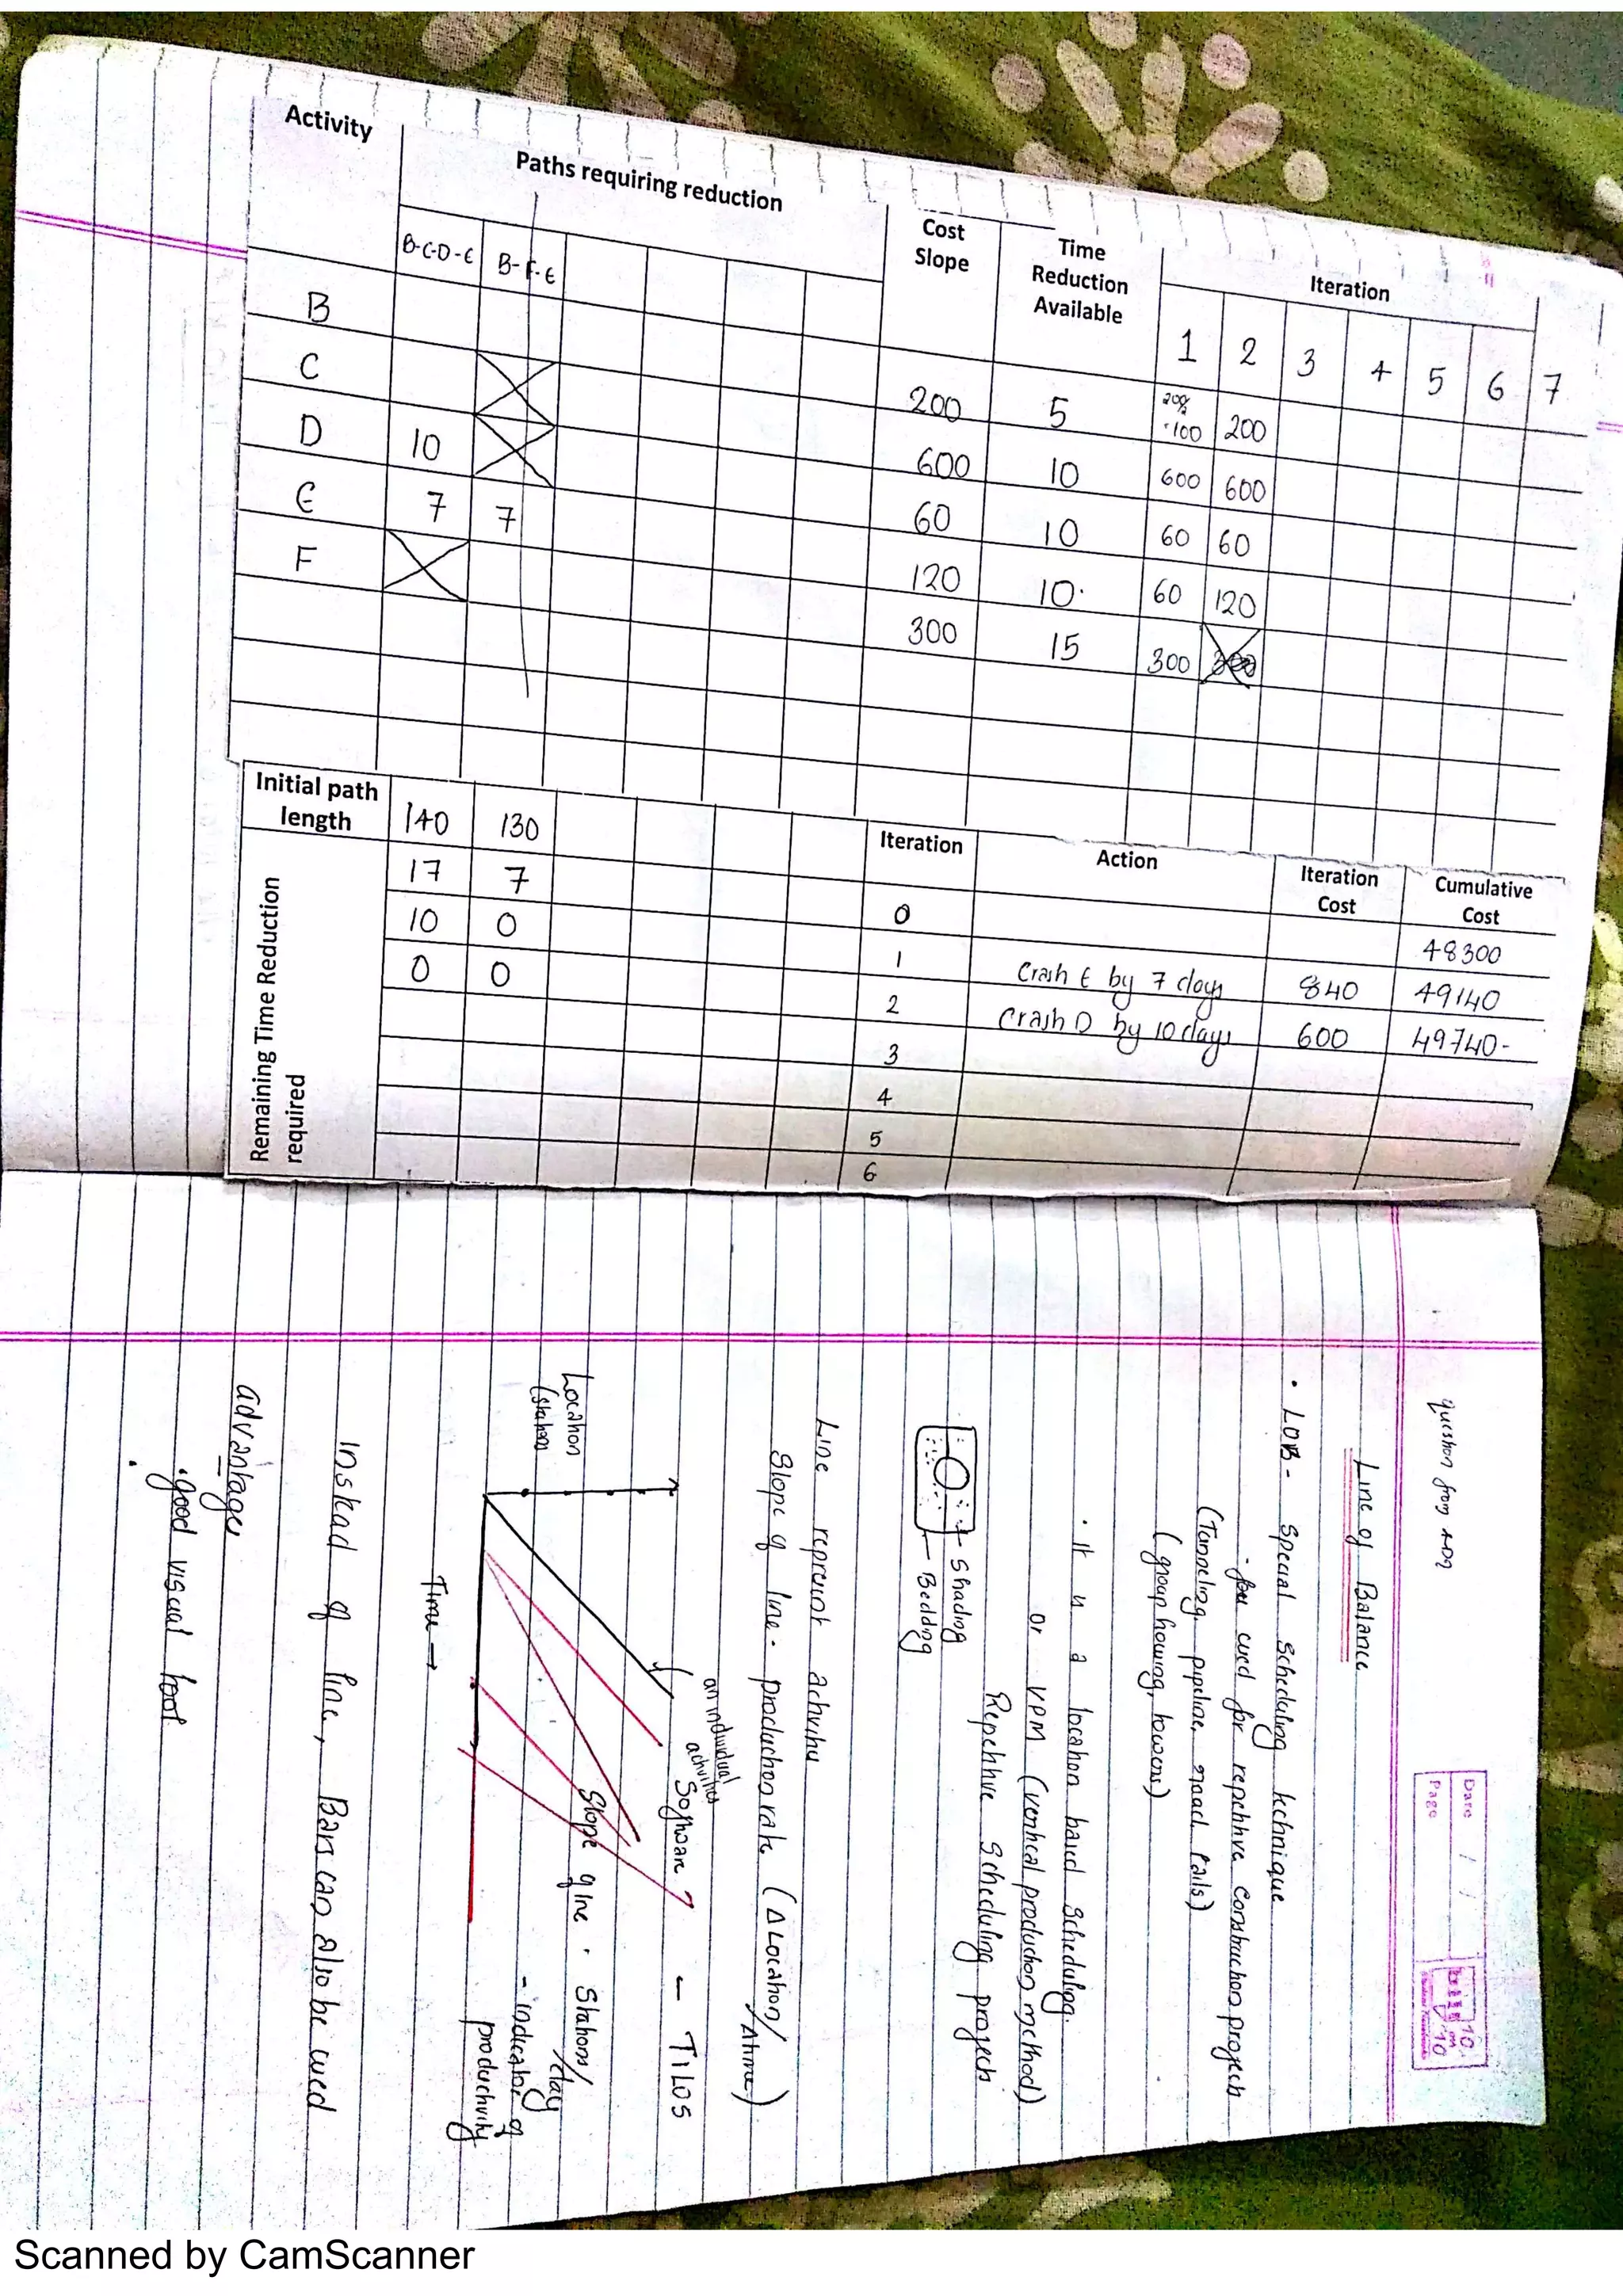 Activity Paths requiring reduction Cost Slope Time Reduction Available Iteration
B-C-D-E B-F-E 1 2 3 4 5 6 7
B 200 5 100 200
C 600 10 600 600
D 10 60 10 60 60
E 7 7 120 10 60 120
F 300 15 300 300
Initial path length 140 130 Iteration Action Iteration Cost Cumulative Cost
Remaining Time Reduction required
17 7 0 48300
10 0 1 Crash E by 7 days 840 49140
0 0 2 Crash D by 10 days 600 49740-
3
4
5
6
question from
Date / /
Page
Line of Balance
• LOB - Special Scheduling technique
- used for repetitive construction projects
(Tunneling, pipeline, road, rails)
(group housing, towers)
• It is a location based scheduling.
or VPM (vertical production method)
Repetitive Scheduling projects
Shading
Bedding
Line represent activity
Slope of line - production rate (Δ Location/
Δtime)
an individual activities
Software ? - TILOS
Location
(stations
Slope of line • Stations/
/day
- indicator of
productivity
Time →
Instead of line, Bars can also be used
advantages
• good visual tool
•
Scanned by CamScanner